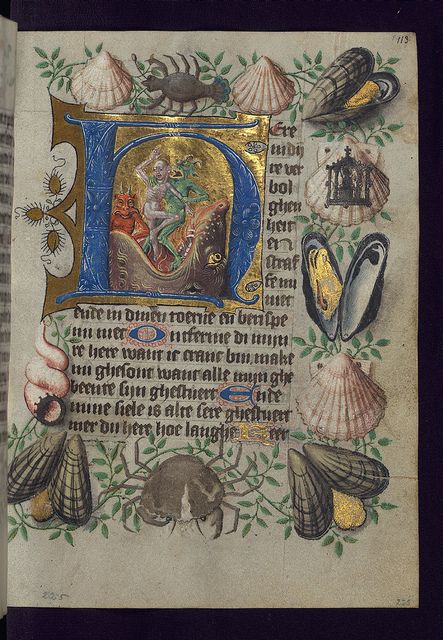 113
Here
in dij
re ver
bol
ghen
heit
en
straf
fe mi
niet
ende in dinen toerne en berispe
mi niet Ontferme di mijn
re here want ic cranc bin make
mi ghesont want alle mijn ghe
beente sijn ghestuert Ende
mine siele is alte sere ghestuert
mer du here hoe langhe Keer
225
225